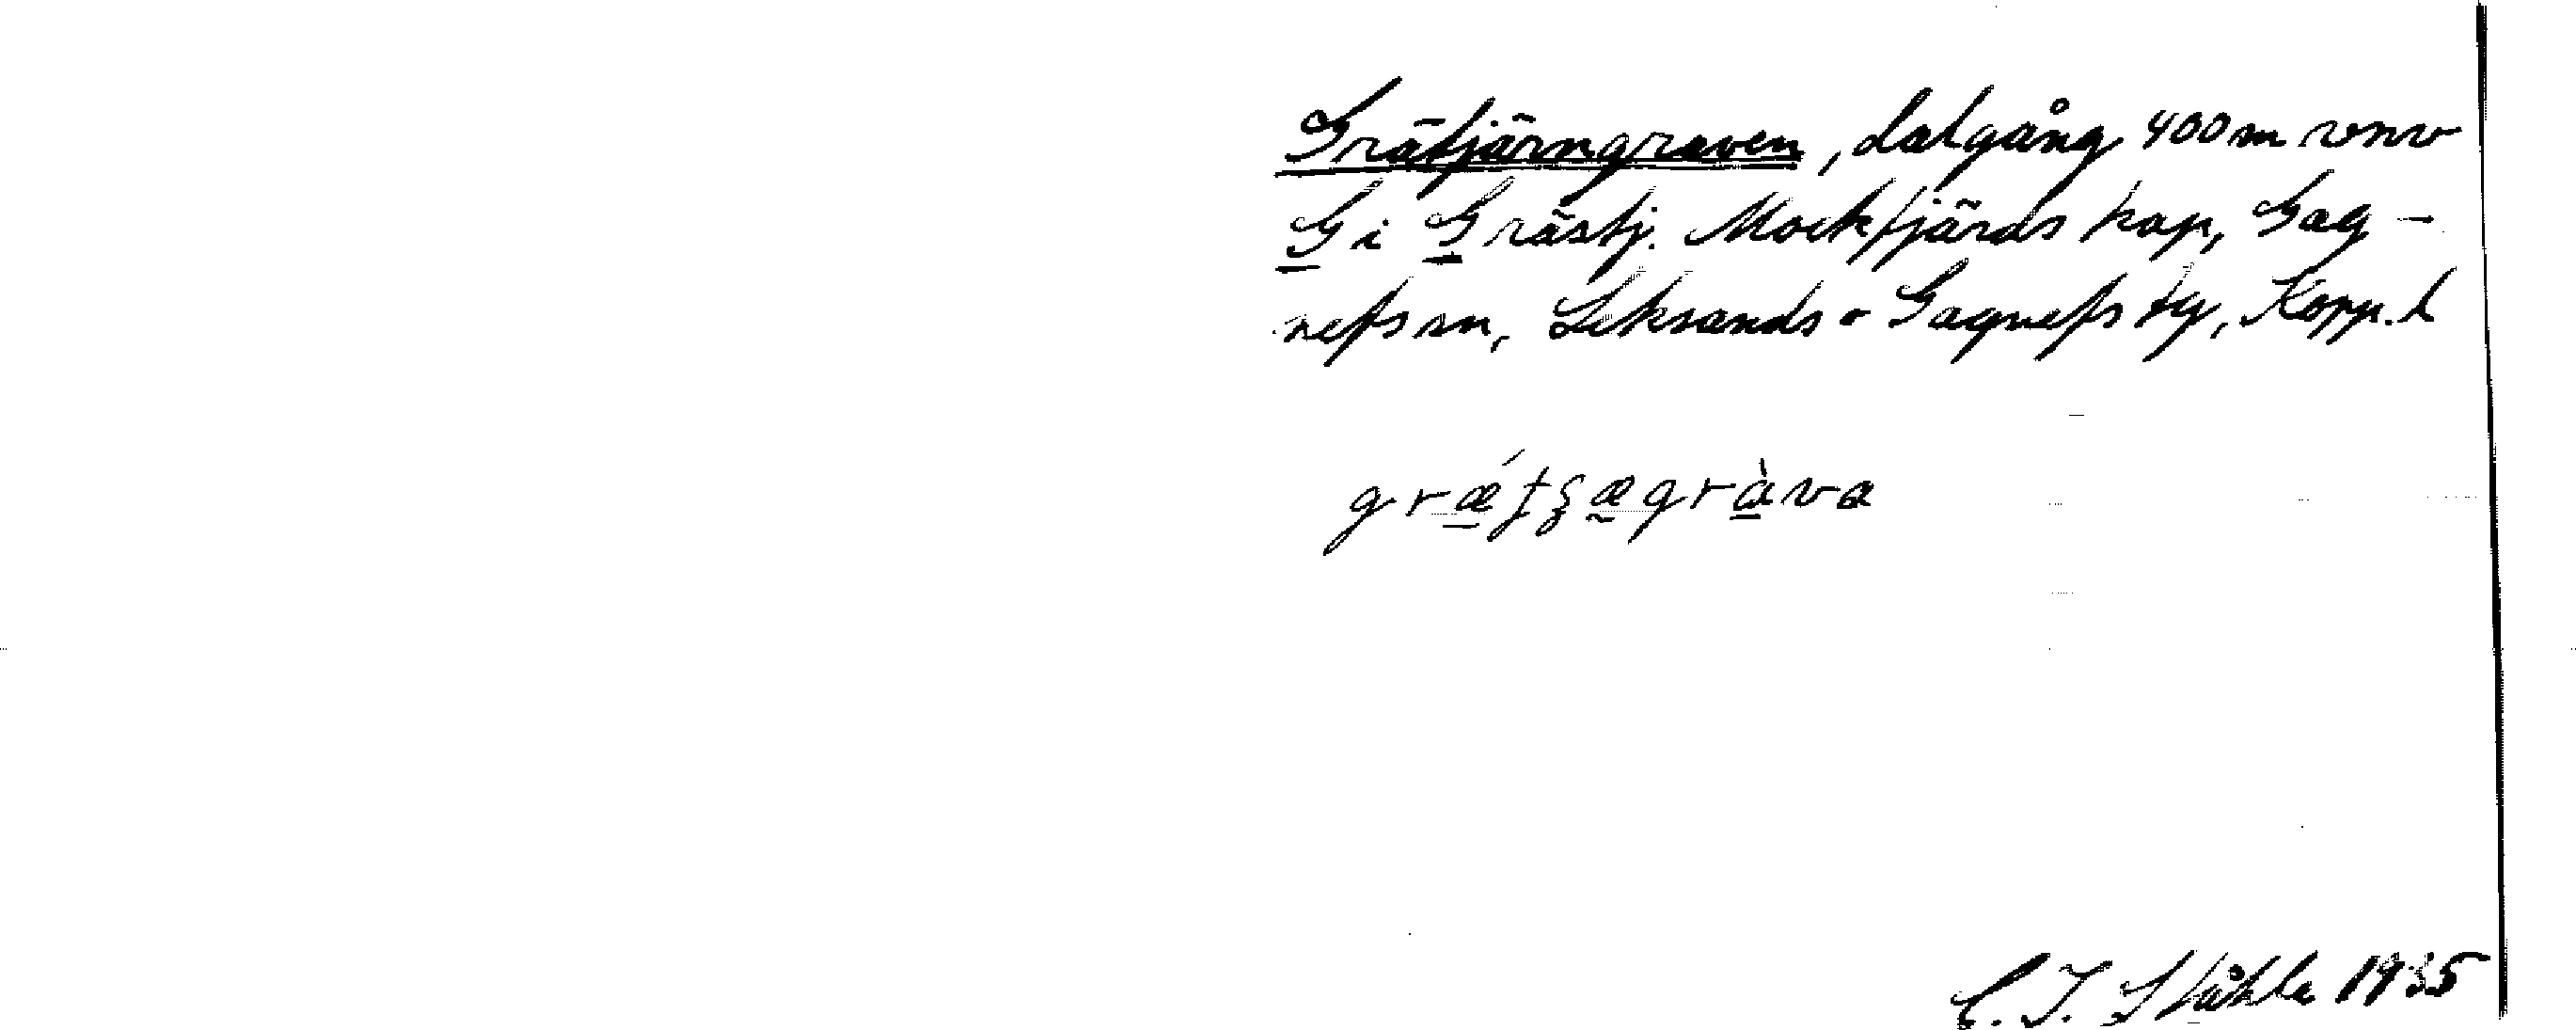 Grätjärngraven, dalgång 400 m vnv
G i Grästj. Mockfjärds kap, Gag-
nefs sn, Leksands o Gagnefs tg, Kopp. l
C. I. Ståhle 1935